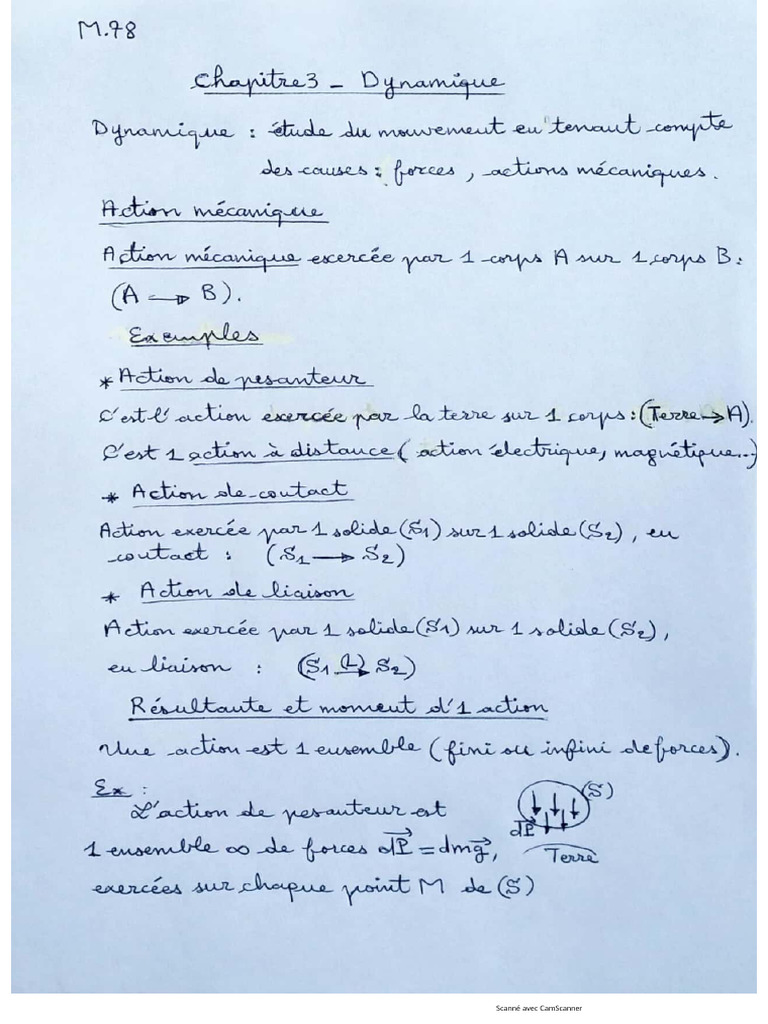 M.78
Chapitre3 - Dynamique
Dynamique : étude du mouvement en tenant compte
des causes : forces, actions mécaniques.
Action mécanique
Action mécanique exercée par 1 corps A sur 1 corps B :
(A → B).
Exemples
* Action de pesanteur
C'est l'action exercée par la terre sur 1 corps : (Terre → A).
C'est 1 action à distance (action électrique, magnétique...)
* Action de contact
Action exercée par 1 solide (S1) sur 1 solide (S2), en
contact : (S1 → S2)
* Action de liaison
Action exercée par 1 solide (S1) sur 1 solide (S2),
en liaison : (S1 (L)→ S2)
Résultante et moment d'1 action
Une action est 1 ensemble (fini ou infini de forces).
Ex :
L'action de pesanteur est
(S)
1 ensemble ∞ de forces dP⃗ = dmg⃗,
dP⃗
Terre
exercées sur chaque point M de (S)
Scanné avec CamScanner